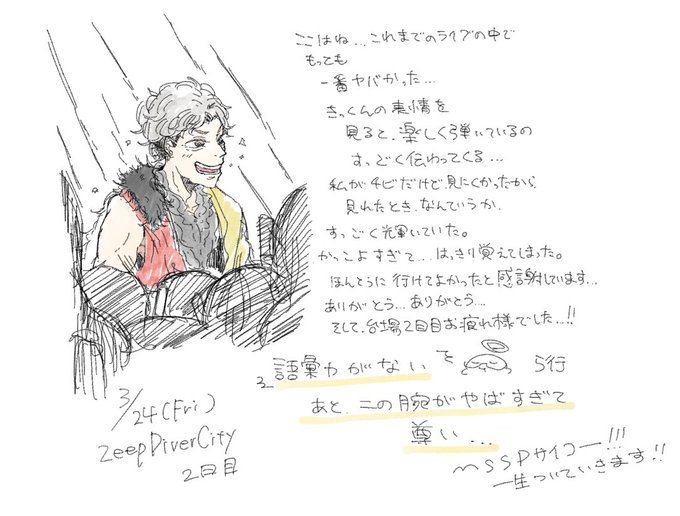 ここはね...これまでのライブの中で
もっても
一番ヤバかった...
きっくんの表情を
見ると、楽しく弾いているの
すっごく伝わってくる...
私がチビだけど、見にくかったから
見れたとき、なんていうか、
すっごく輝いていた。
かっこよすぎて...はっきり覚えてしまった。
ほんとうに行けてよかったと感謝しています...
ありがとう...ありがとう...
そして、台場2日目お疲れ様でした...!!
語彙力がない
あと、この腕がやばすぎて
尊い...
3/24(Fri)
ZeepDiverCity
2日目
MSSPサイコー!!!
一生ついていきます!!